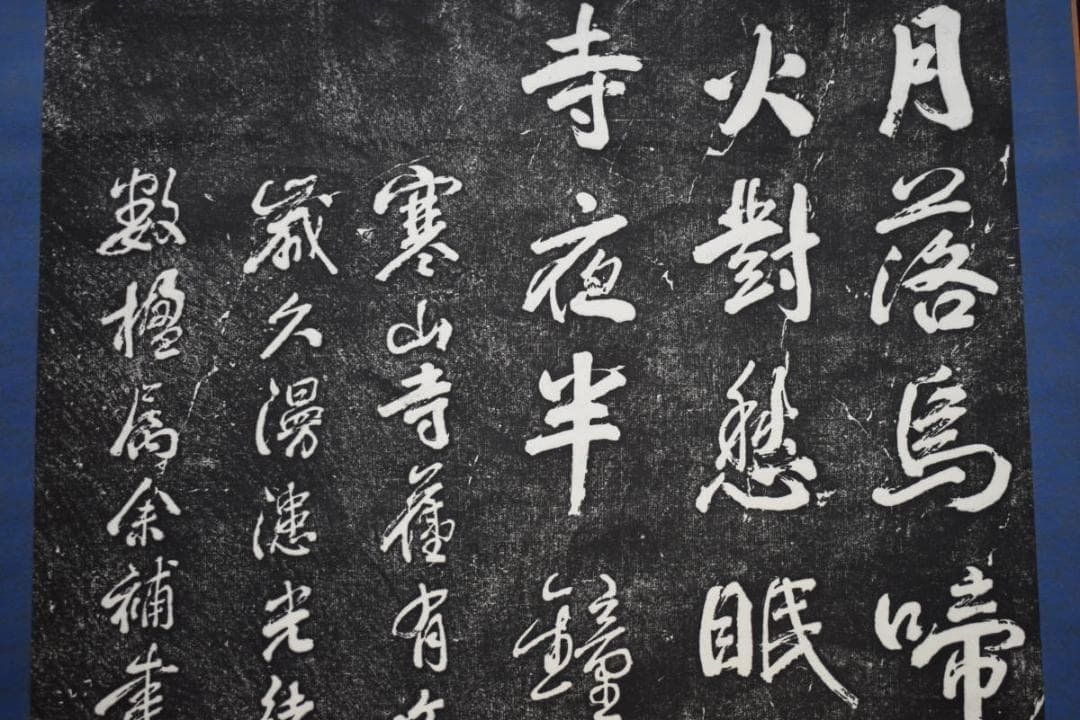 月落烏啼
火對愁眠
寺夜半鐘
寒山寺舊有
歲久漫漶光
數楹屬余補書